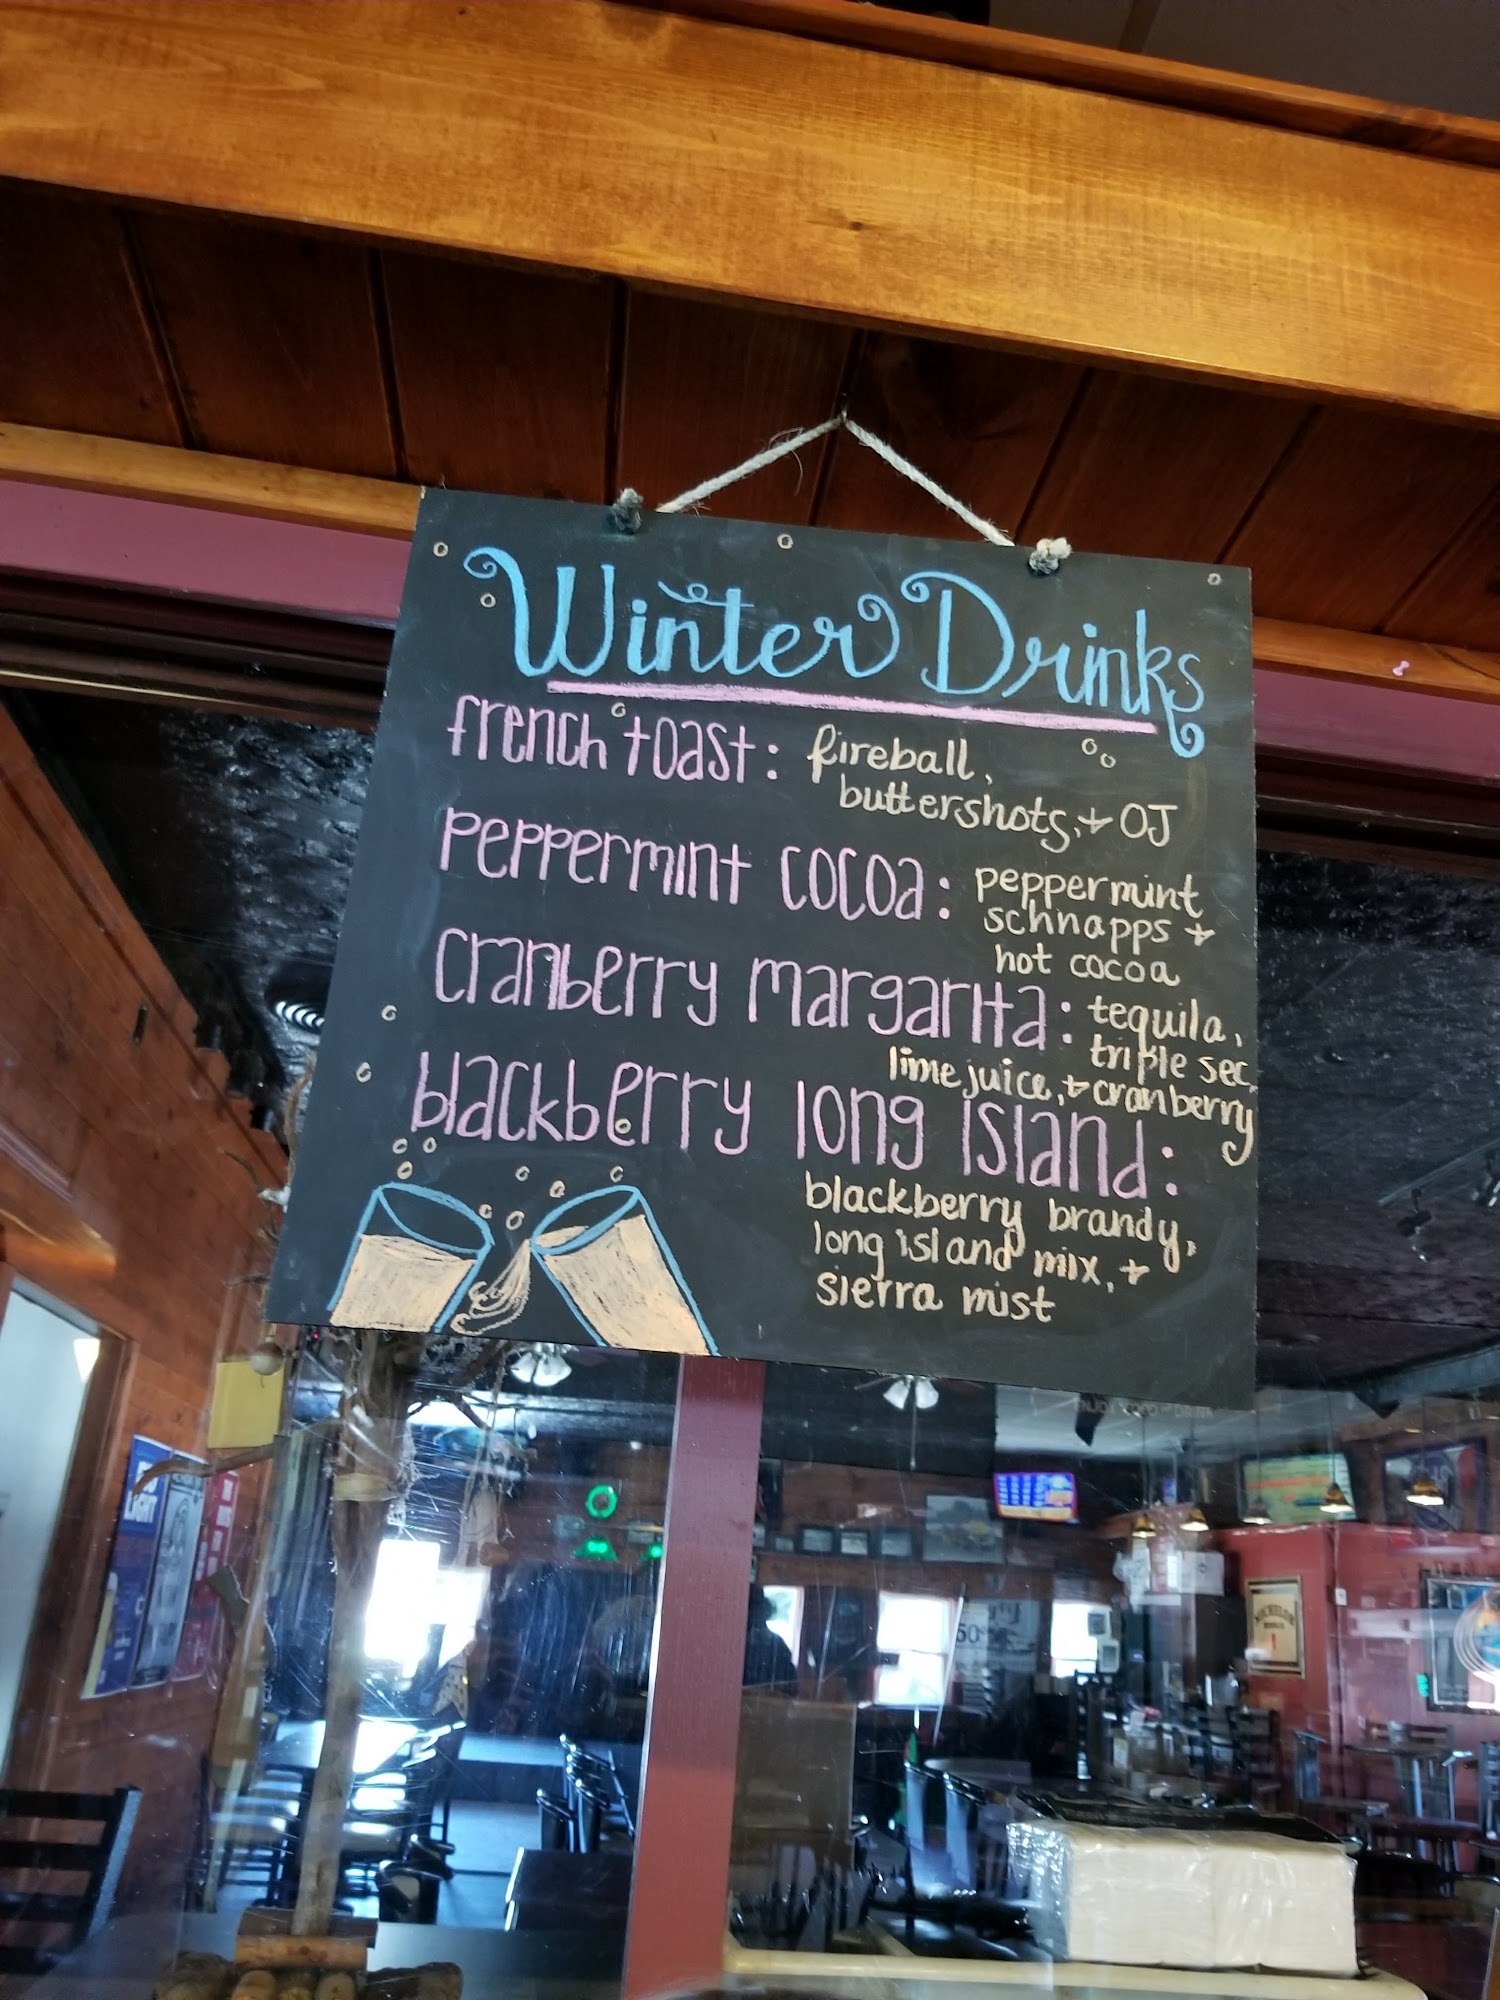 Winter Drinks
french toast: fireball,
buttershots, + OJ
peppermint cocoa: peppermint
schnapps +
hot cocoa
cranberry margarita: tequila,
triple sec,
lime juice, + cranberry
blackberry long island:
blackberry brandy,
long island mix, +
sierra mist
LIGHT
50